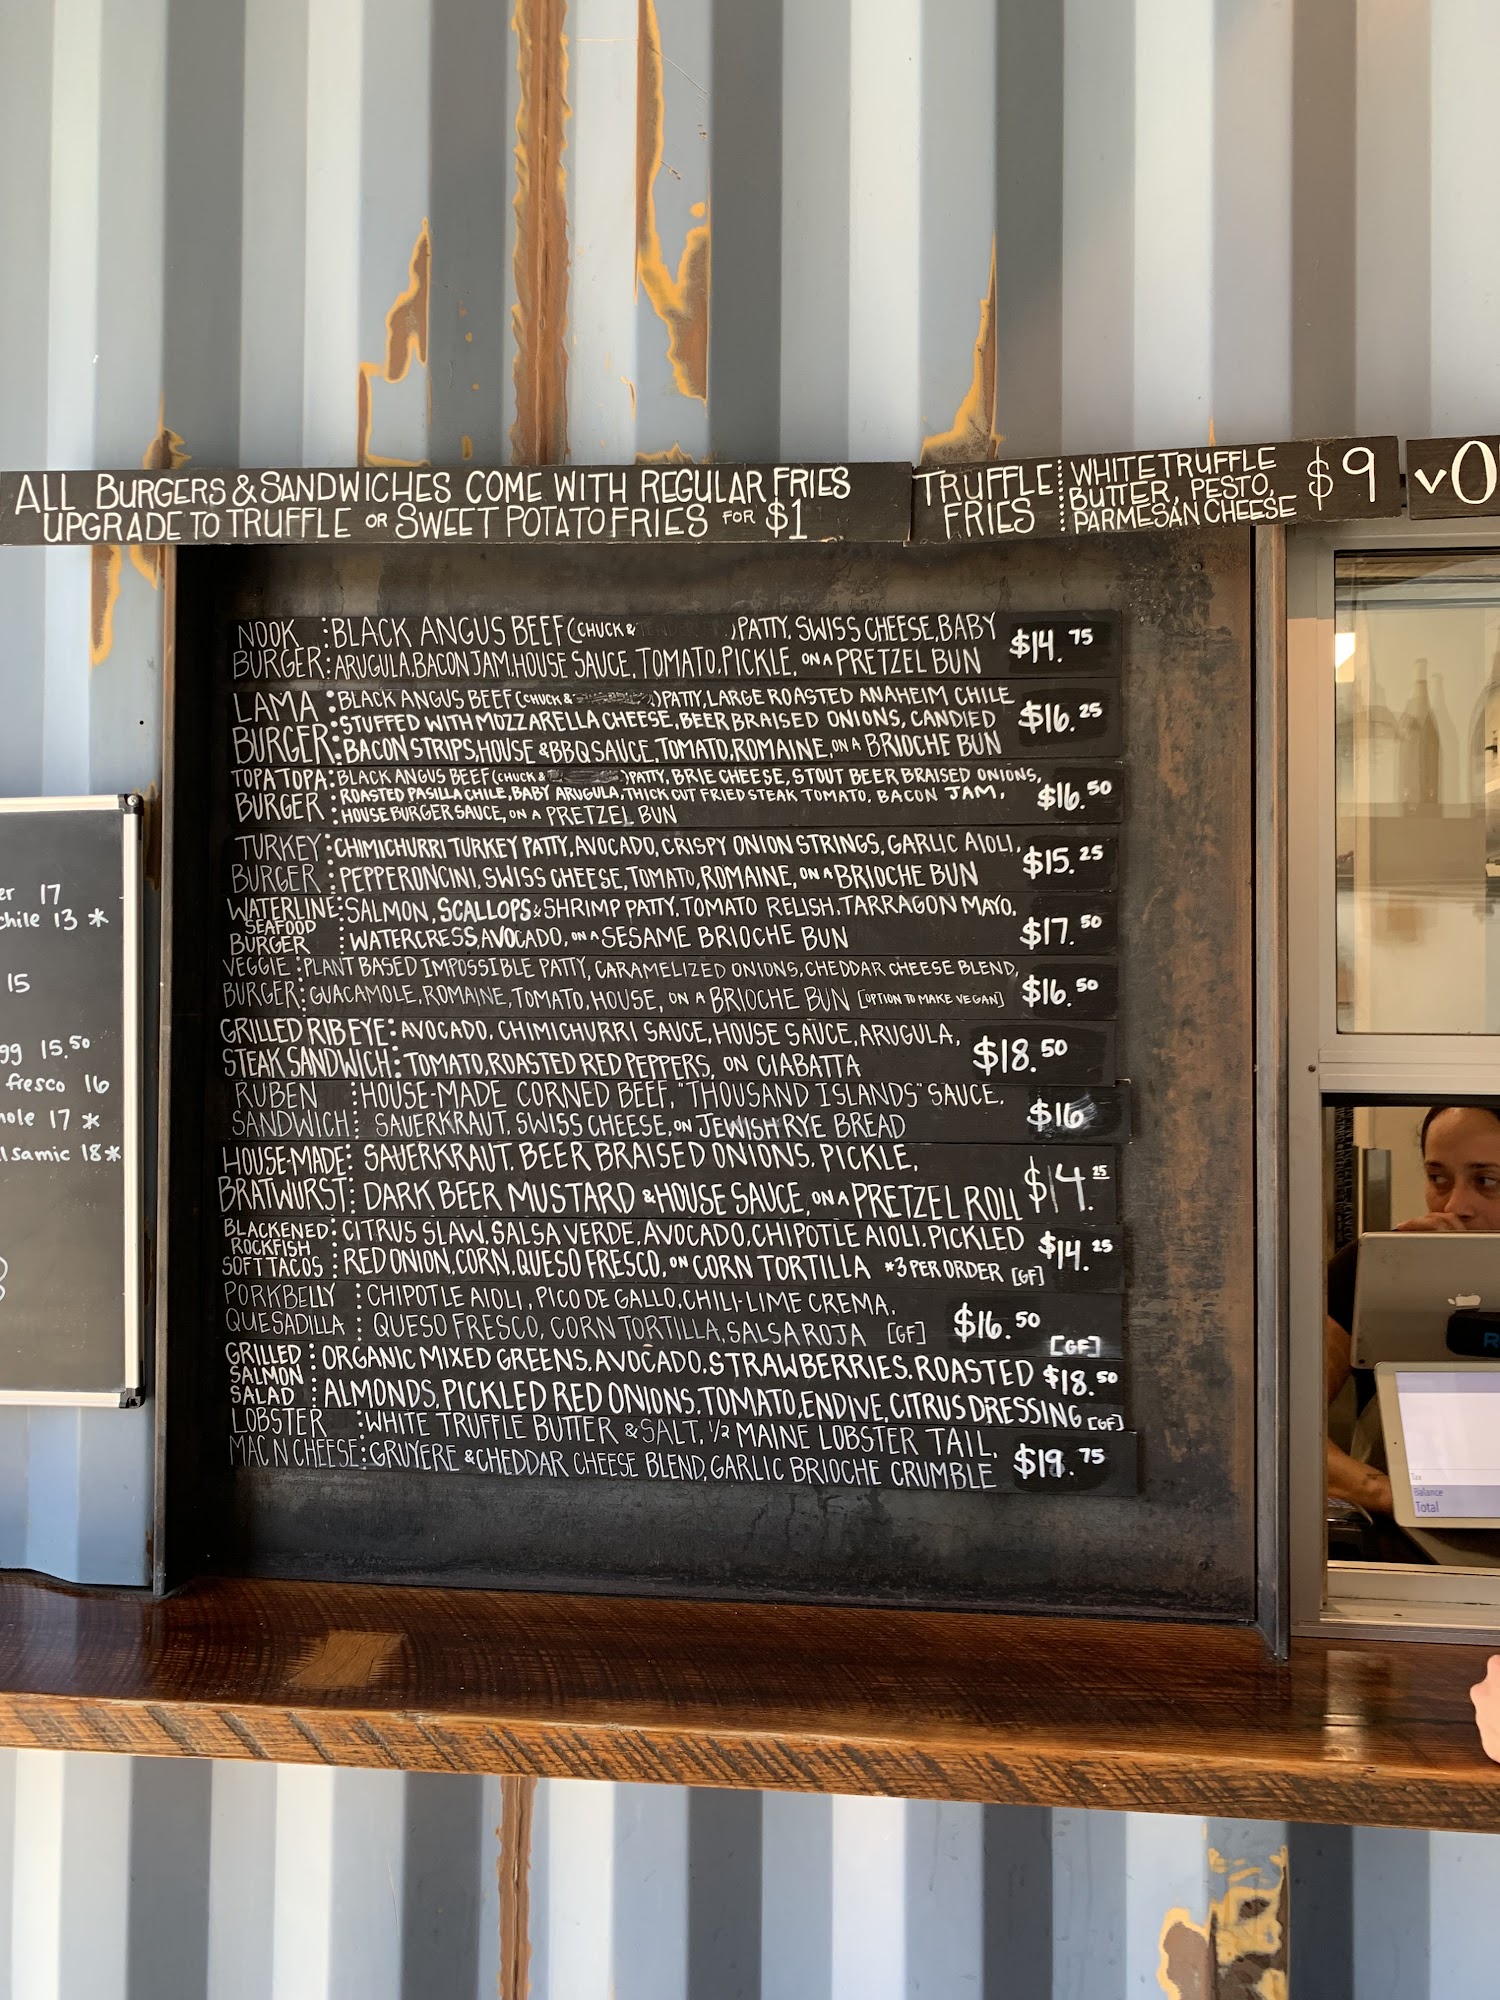 ALL BURGERS & SANDWICHES COME WITH REGULAR FRIES
UPGRADE TO TRUFFLE OR SWEET POTATO FRIES FOR $1
TRUFFLE FRIES : WHITE TRUFFLE
BUTTER, PESTO,
PARMESAN CHEESE $9
NOOK : BLACK ANGUS BEEF (CHUCK & ) PATTY, SWISS CHEESE, BABY
BURGER: ARUGULA, BACON JAM, HOUSE SAUCE, TOMATO, PICKLE, ON A PRETZEL BUN $14.75
LAMA : BLACK ANGUS BEEF (CHUCK & ) PATTY, LARGE ROASTED ANAHEIM CHILE
STUFFED WITH MOZZARELLA CHEESE, BEER BRAISED ONIONS, CANDIED
BURGER: BACON STRIPS, HOUSE & BBQ SAUCE, TOMATO, ROMAINE, ON A BRIOCHE BUN $16.25
TOPA TOPA: BLACK ANGUS BEEF (CHUCK & ) PATTY, BRIE CHEESE, STOUT BEER BRAISED ONIONS,
BURGER : ROASTED PASILLA CHILE, BABY ARUGULA, THICK CUT FRIED STEAK TOMATO, BACON JAM,
HOUSE BURGER SAUCE, ON A PRETZEL BUN $16.50
TURKEY : CHIMICHURRI TURKEY PATTY, AVOCADO, CRISPY ONION STRINGS, GARLIC AIOLI,
BURGER : PEPPERONCINI, SWISS CHEESE, TOMATO, ROMAINE, ON A BRIOCHE BUN $15.25
WATERLINE: SALMON, SCALLOPS & SHRIMP PATTY, TOMATO RELISH, TARRAGON MAYO,
SEAFOOD
BURGER : WATERCRESS, AVOCADO, ON A SESAME BRIOCHE BUN $17.50
VEGGIE : PLANT BASED IMPOSSIBLE PATTY, CARAMELIZED ONIONS, CHEDDAR CHEESE BLEND,
BURGER: GUACAMOLE, ROMAINE, TOMATO, HOUSE, ON A BRIOCHE BUN [OPTION TO MAKE VEGAN] $16.50
GRILLED RIB EYE: AVOCADO, CHIMICHURRI SAUCE, HOUSE SAUCE, ARUGULA,
STEAK SANDWICH: TOMATO, ROASTED RED PEPPERS, ON CIABATTA $18.50
RUBEN : HOUSE-MADE CORNED BEEF, "THOUSAND ISLANDS" SAUCE,
SANDWICH: SAUERKRAUT, SWISS CHEESE, ON JEWISH RYE BREAD $16
HOUSE-MADE: SAUERKRAUT, BEER BRAISED ONIONS, PICKLE,
BRATWURST: DARK BEER MUSTARD & HOUSE SAUCE, ON A PRETZEL ROLL $14.25
BLACKENED : CITRUS SLAW, SALSA VERDE, AVOCADO, CHIPOTLE AIOLI, PICKLED
ROCKFISH
SOFT TACOS : RED ONION, CORN, QUESO FRESCO, ON CORN TORTILLA *3 PER ORDER [GF] $14.25
PORKBELLY : CHIPOTLE AIOLI, PICO DE GALLO, CHILI-LIME CREMA,
QUESADILLA : QUESO FRESCO, CORN TORTILLA, SALSA ROJA [GF] $16.50
[GF]
GRILLED : ORGANIC MIXED GREENS, AVOCADO, STRAWBERRIES, ROASTED
SALMON
SALAD : ALMONDS, PICKLED RED ONIONS, TOMATO, ENDIVE, CITRUS DRESSING [GF] $18.50
LOBSTER : WHITE TRUFFLE BUTTER & SALT, 1/2 MAINE LOBSTER TAIL,
MAC N CHEESE: GRUYERE & CHEDDAR CHEESE BLEND, GARLIC BRIOCHE CRUMBLE $19.75
er 17
chile 13 *
15
gg 15.50
fresco 16
ole 17 *
lsamic 18 *
Tax
Balance
Total